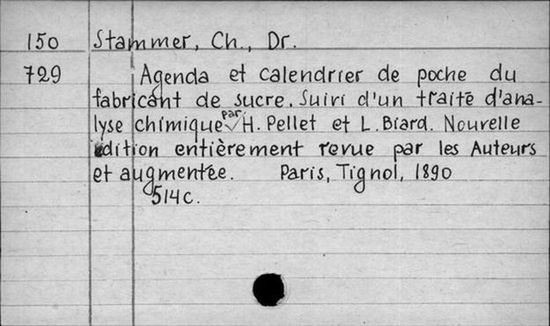 150 Stammer, Ch., Dr.
729 Agenda et calendrier de poche du
fabricant de sucre. Suivi d'un traité d'ana-
lyse chimique par H. Pellet et L. Biard. Nouvelle
édition entièrement revue par les Auteurs
et augmentée. Paris, Tignol, 1890
514c.